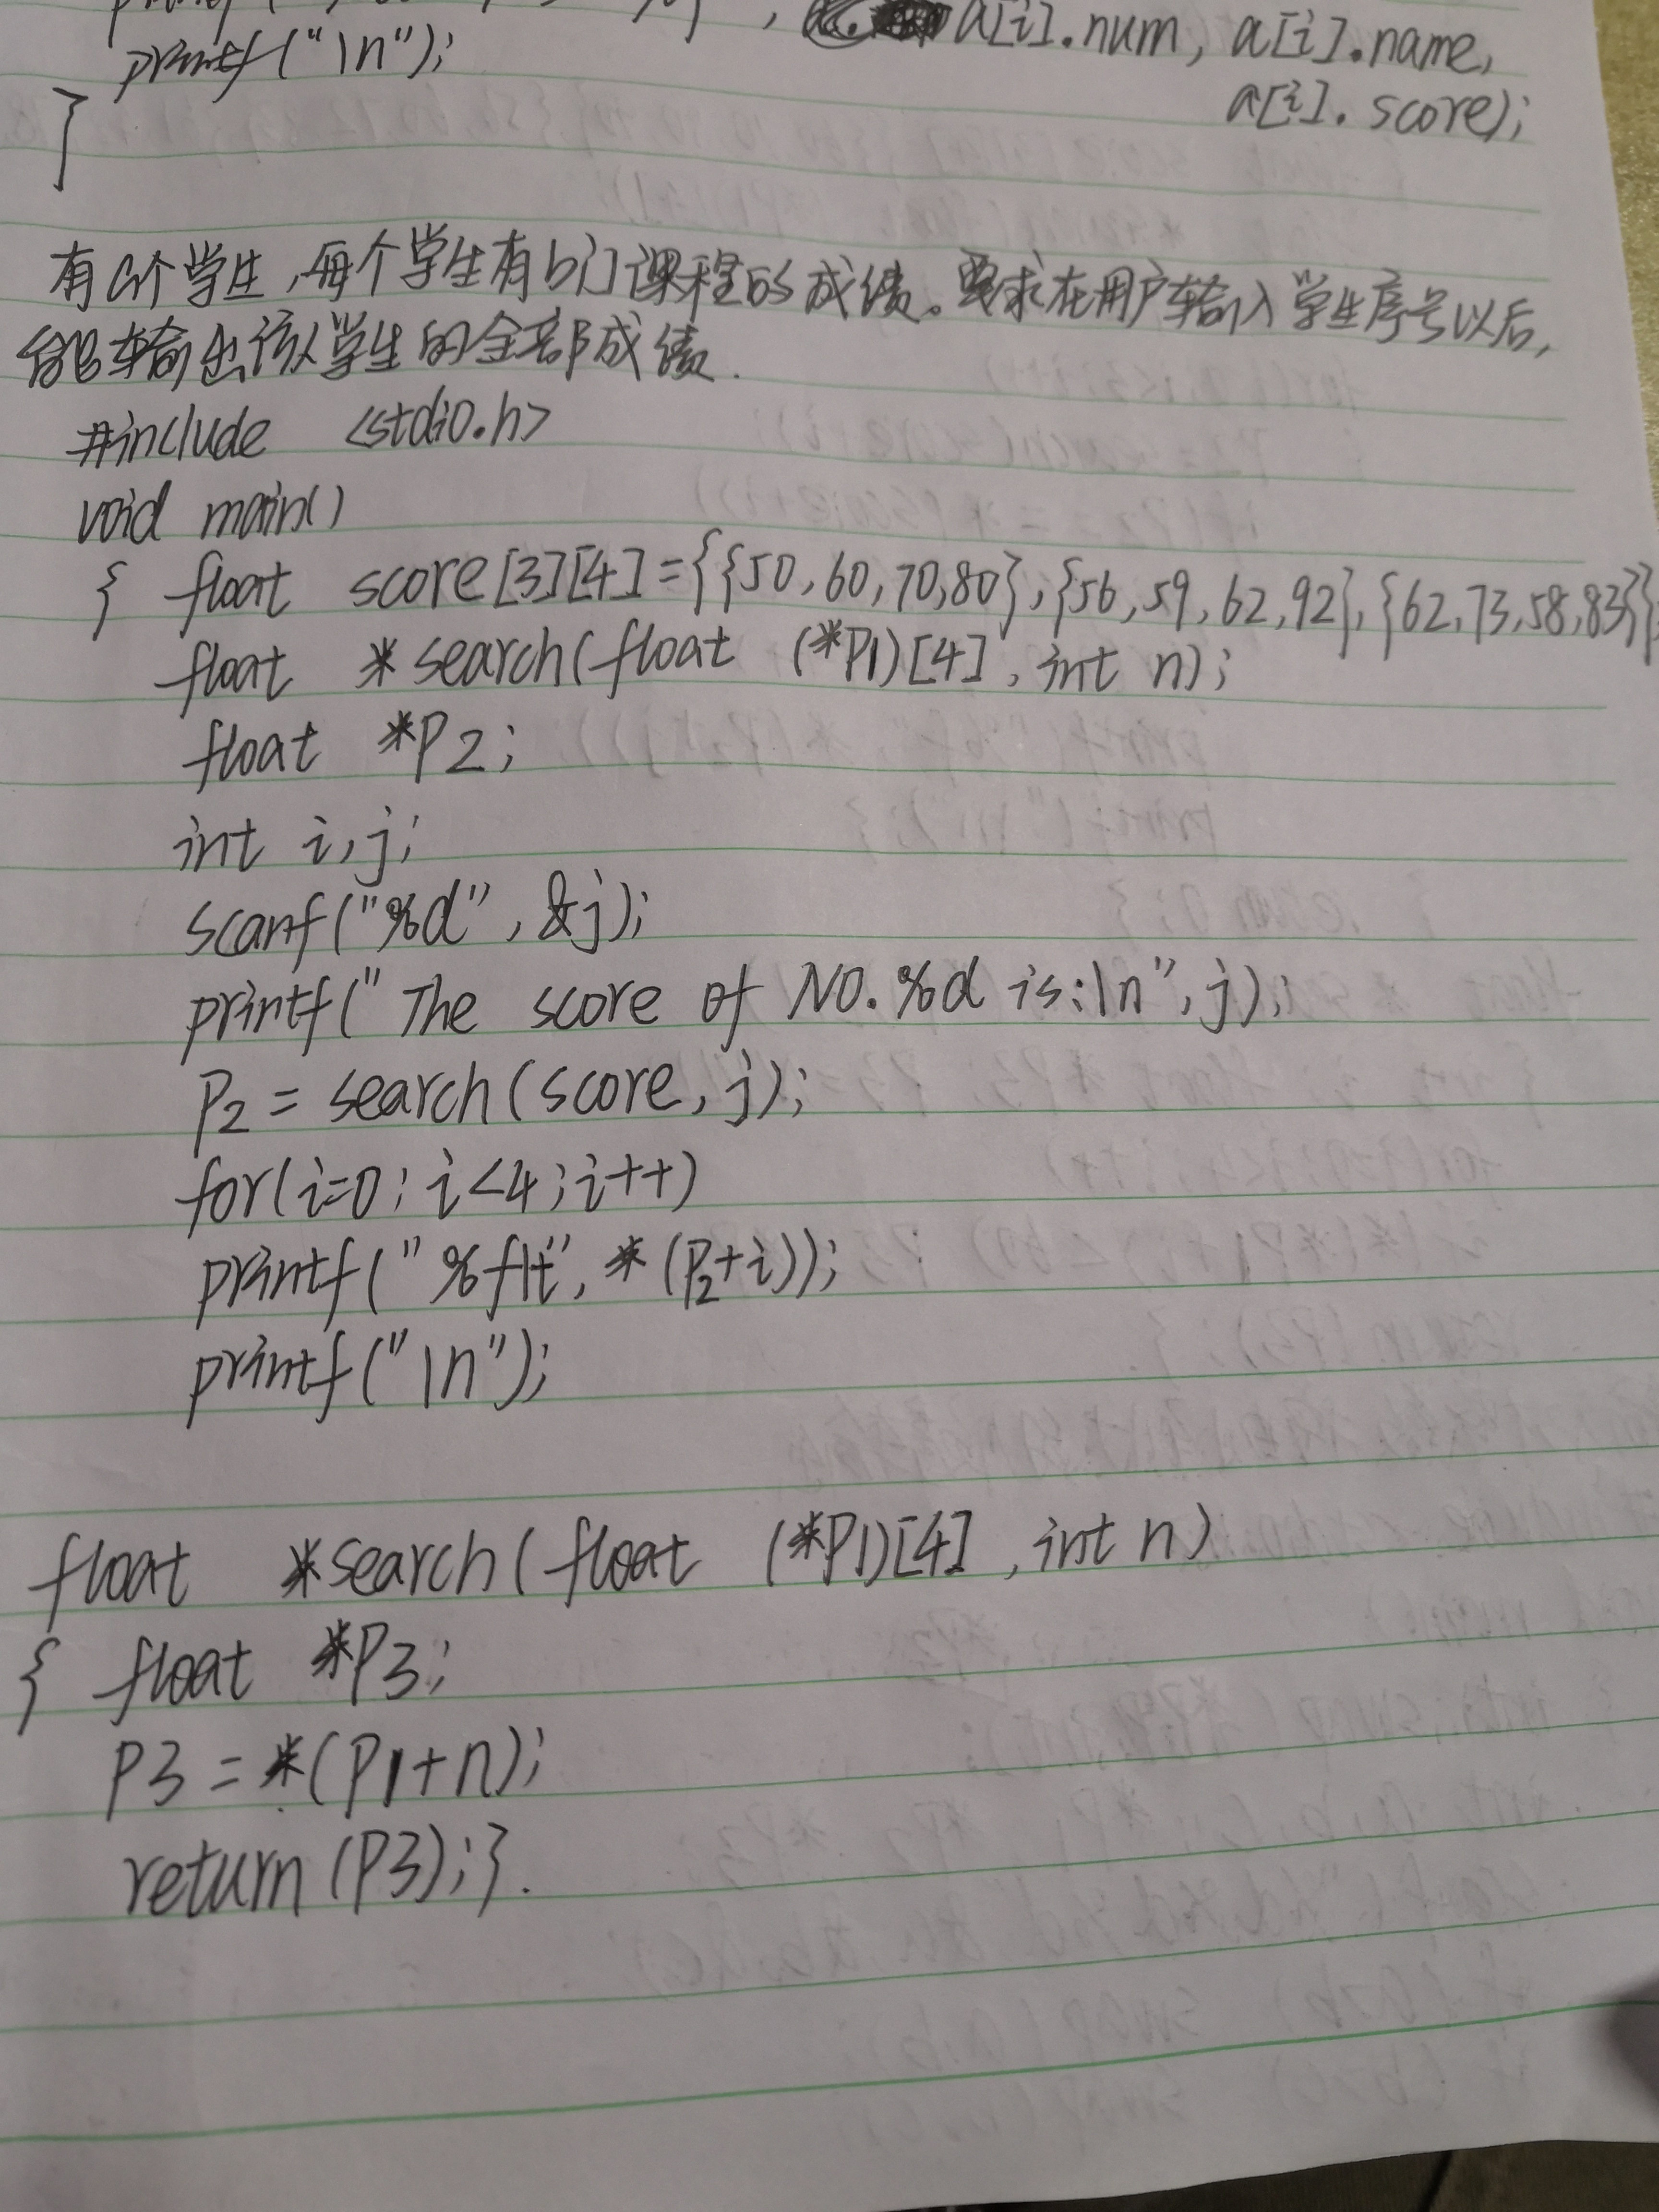 printf("\n");
a[i].num, a[i].name,
a[i].score);
}
有a个学生,每个学生有b门课程的成绩。要求在用户输入学生序号以后,
能输出该学生的全部成绩.
#include <stdio.h>
void main()
{ float score[3][4]={{50,60,70,80},{56,59,62,92},{62,73,58,83}};
float *search(float (*P1)[4], int n);
float *P2;
int i,j;
scanf("%d", &j);
printf("The score of NO.%d is:\n", j);
P2 = search(score, j);
for(i=0; i<4; i++)
printf("%f\t", *(P2+i));
printf("\n");
float *search(float (*P1)[4], int n)
{ float *P3;
P3 = *(P1+n);
return (P3);}.